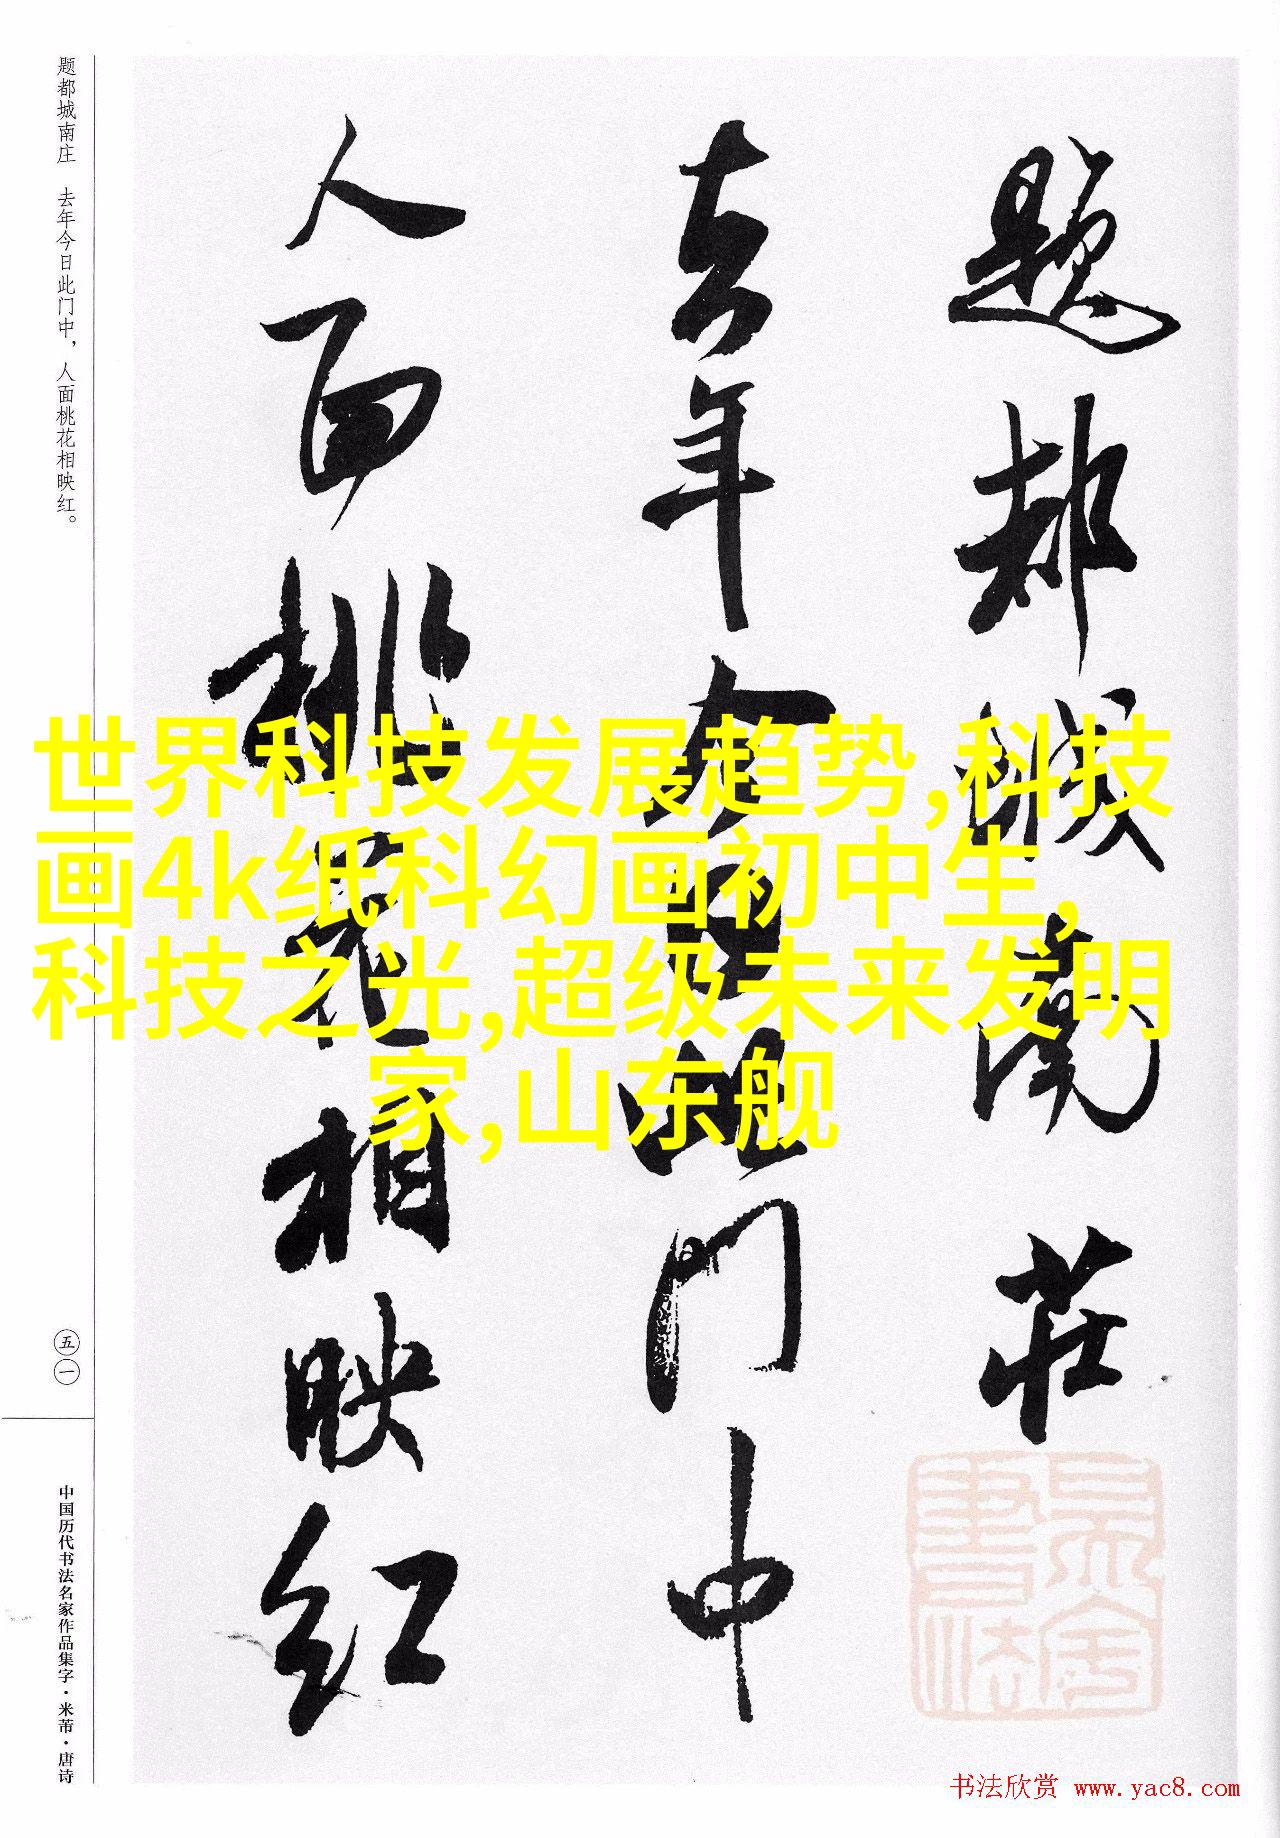 题都城南莊
去年今日此门中
人面桃花相映红
题都城南庄　去年今日此门中，人面桃花相映红。
五一
中国历代书法名家作品集字·米芾·唐诗
世界科技发展趋势,科技
画4k纸科幻画初中生,
科技之光,超级未来发明
家,山东舰
书法欣赏 www.yac8.com